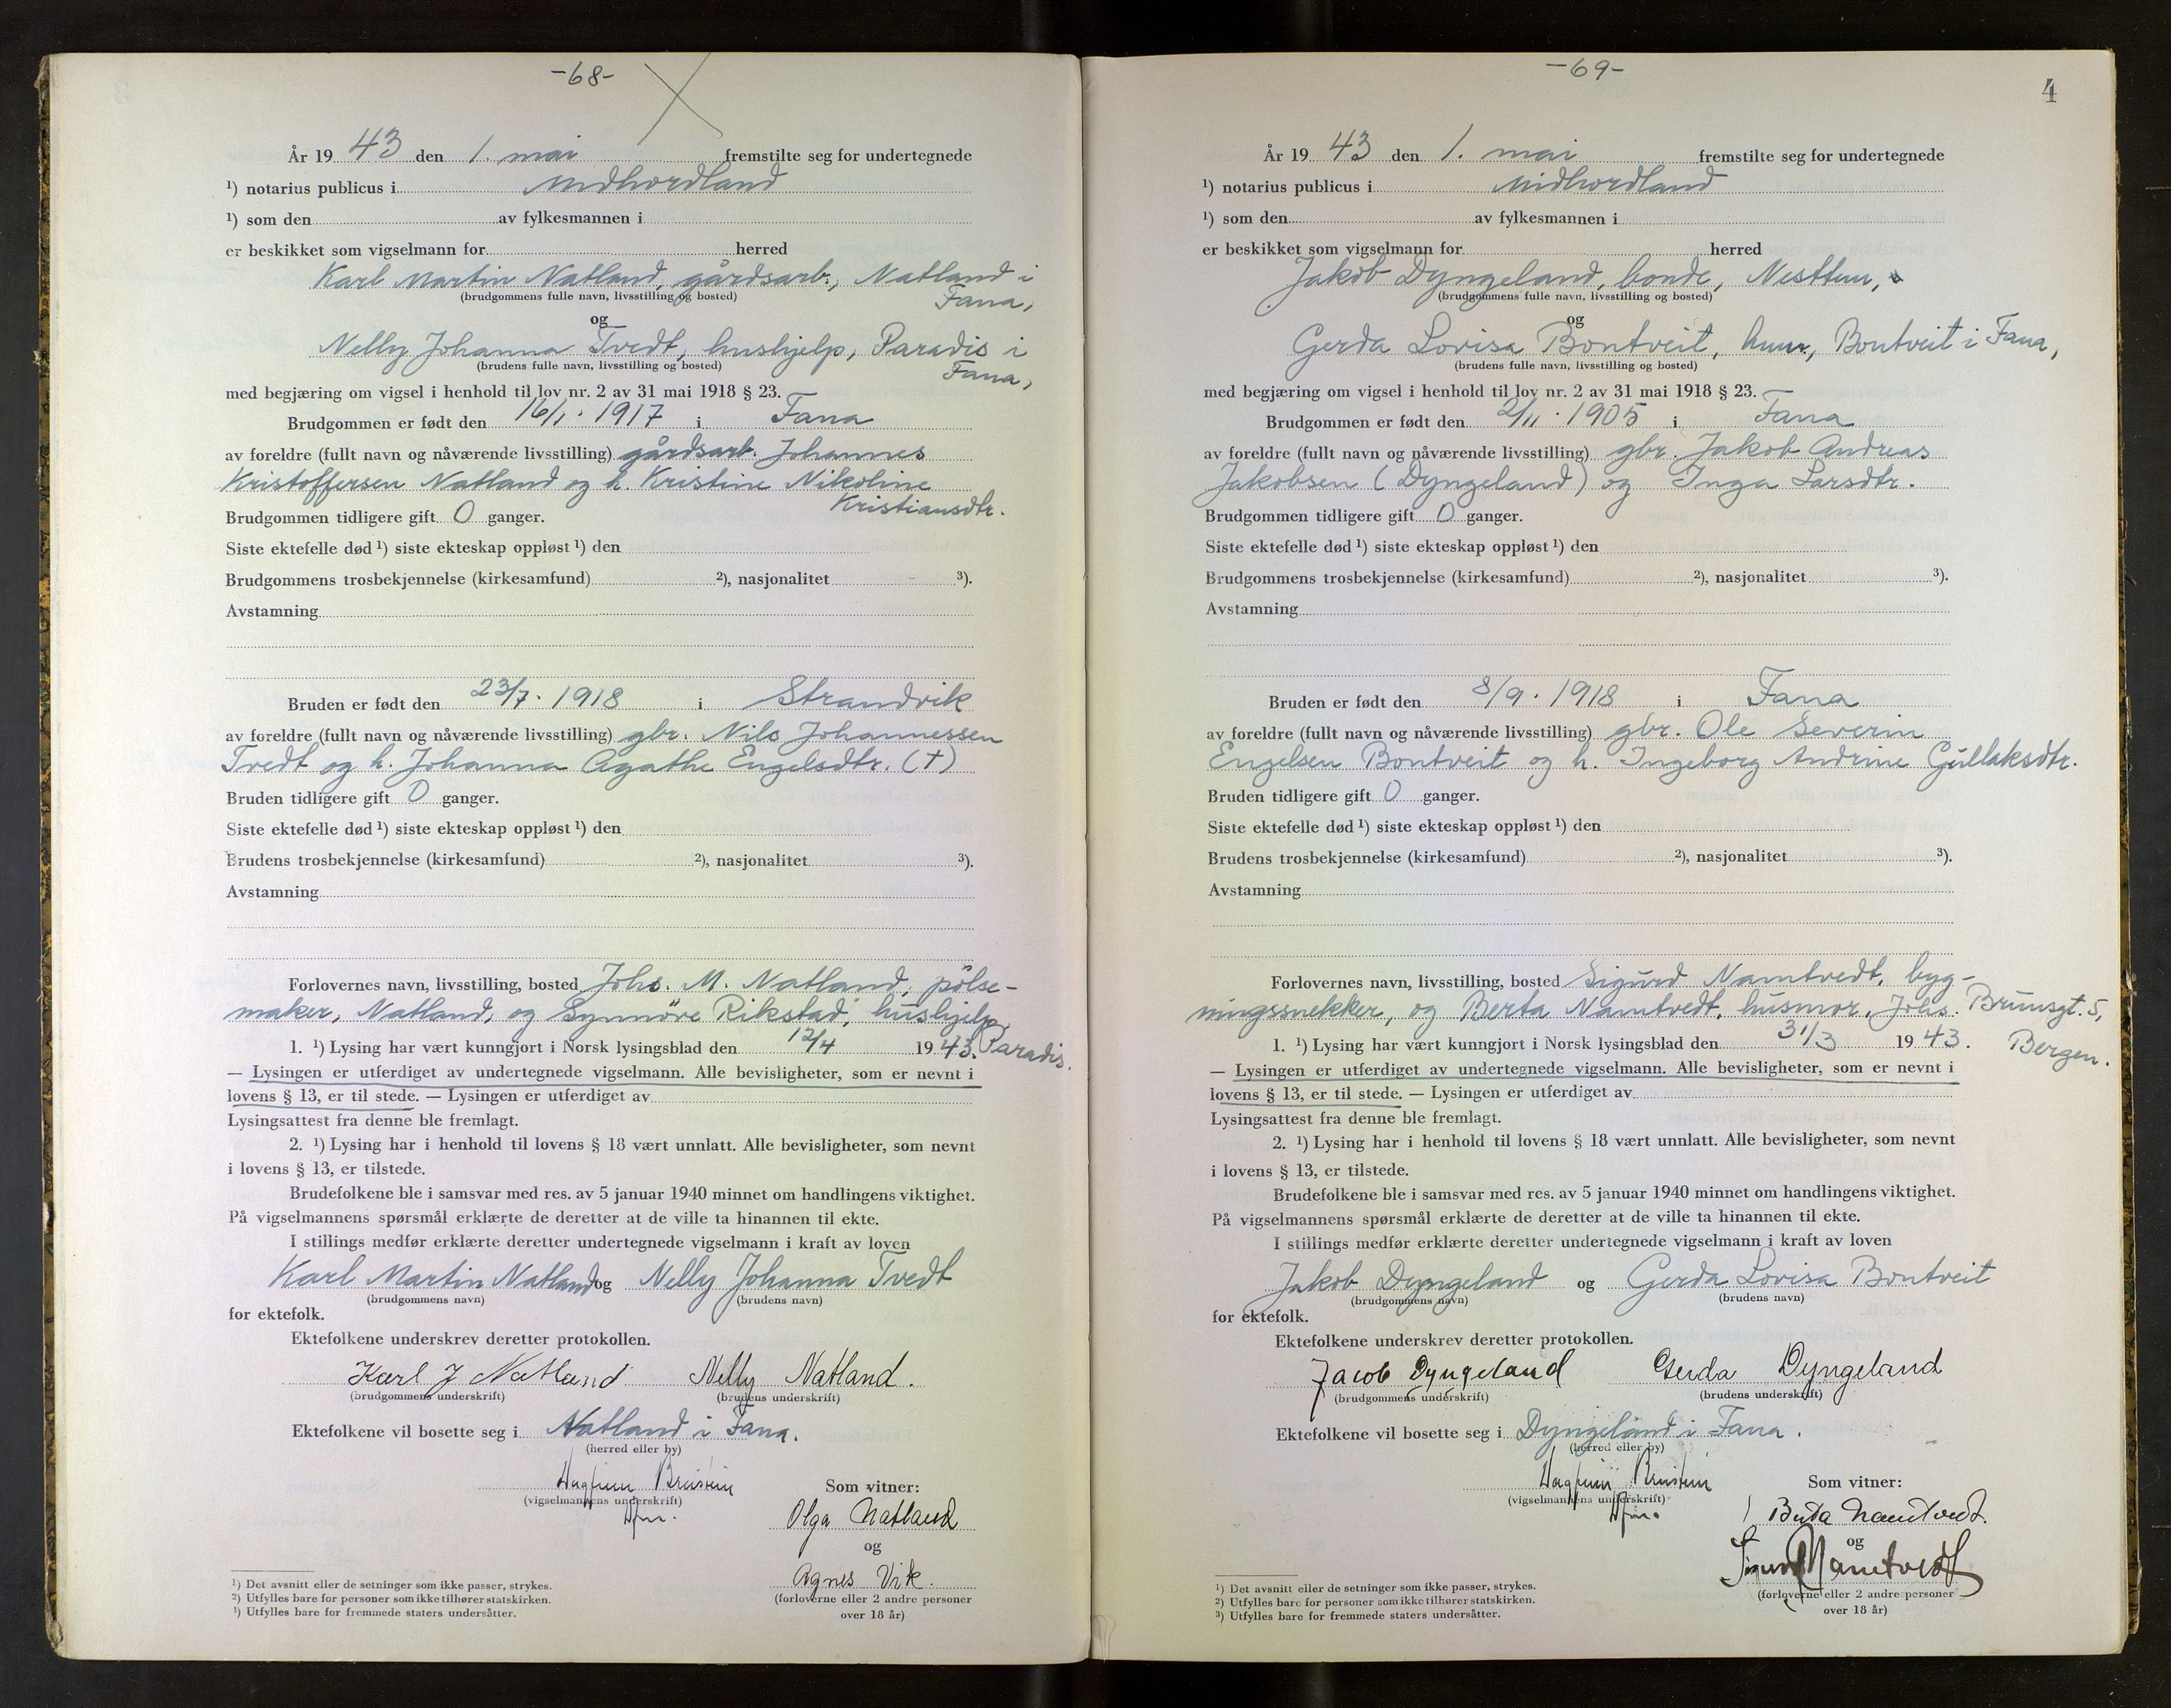 -68-
År 19 43 den 1. mai fremstilte seg for undertegnede
¹) notarius publicus i Midhordland
¹) som den av fylkesmannen i
er beskikket som vigselmann for herred
Karl Martin Natland, gårdsarb., Natland i
(brudgommens fulle navn, livsstilling og bosted)
Fana,
og
Nelly Johanna Tvedt, hushjelp, Paradis i
(brudens fulle navn, livsstilling og bosted)
Fana,
med begjæring om vigsel i henhold til lov nr. 2 av 31 mai 1918 § 23.
Brudgommen er født den 16/1. 1917 i Fana
av foreldre (fullt navn og nåværende livsstilling) gårdsarb. Johannes
Kristoffersen Natland og h. Kristine Nikoline
Kristiansdtr.
Brudgommen tidligere gift 0 ganger.
Siste ektefelle død ¹) siste ekteskap oppløst ¹) den
Brudgommens trosbekjennelse (kirkesamfund) ²), nasjonalitet ³).
Avstamning
Bruden er født den 23/7. 1918 i Strandvik
av foreldre (fullt navn og nåværende livsstilling) gbr. Nils Johannessen
Tvedt og h. Johanna Agathe Engelsdtr. (†)
Bruden tidligere gift 0 ganger.
Siste ektefelle død ¹) siste ekteskap oppløst ¹) den
Brudens trosbekjennelse (kirkesamfund) ²), nasjonalitet ³).
Avstamning
Forlovernes navn, livsstilling, bosted Johs. M. Natland, pölse-
maker, Natland, og Synnöve Rikstad, hushjelp,
Paradis.
1. ¹) Lysing har vært kunngjort i Norsk lysingsblad den 12/4 19 43.
— Lysingen er utferdiget av undertegnede vigselmann. Alle bevisligheter, som er nevnt i
lovens § 13, er til stede. — Lysingen er utferdiget av
Lysingsattest fra denne ble fremlagt.
2. ¹) Lysing har i henhold til lovens § 18 vært unnlatt. Alle bevisligheter, som nevnt
i lovens § 13, er tilstede.
Brudefolkene ble i samsvar med res. av 5 januar 1940 minnet om handlingens viktighet.
På vigselmannens spørsmål erklærte de deretter at de ville ta hinannen til ekte.
I stillings medfør erklærte deretter undertegnede vigselmann i kraft av loven
Karl Martin Natland og Nelly Johanna Tvedt
(brudgommens navn) (brudens navn)
for ektefolk.
Ektefolkene underskrev deretter protokollen.
Karl J Natland Nelly Natland.
(brudgommens underskrift) (brudens underskrift)
Ektefolkene vil bosette seg i Natland i Fana.
(herred eller by)
(vigselmannens underskrift)
Som vitner:
Olga Natland
og
Agnes Vik.
(forloverne eller 2 andre personer
over 18 år)
¹) Det avsnitt eller de setninger som ikke passer, strykes.
²) Utfylles bare for personer som ikke tilhører statskirken.
³) Utfylles bare for fremmede staters undersåtter.
-69-
4
År 19 43 den 1. mai fremstilte seg for undertegnede
¹) notarius publicus i Midhordland
¹) som den av fylkesmannen i
er beskikket som vigselmann for herred
Jakob Dyngeland, bonde, Nesttun,
(brudgommens fulle navn, livsstilling og bosted)
og
Gerda Lovisa Bontveit, Bontveit i Fana,
(brudens fulle navn, livsstilling og bosted)
med begjæring om vigsel i henhold til lov nr. 2 av 31 mai 1918 § 23.
Brudgommen er født den 2/11. 1905 i Fana
av foreldre (fullt navn og nåværende livsstilling) gbr. Jakob Andreas
Jakobsen (Dyngeland) og Inga Larsdtr.
Brudgommen tidligere gift 0 ganger.
Siste ektefelle død ¹) siste ekteskap oppløst ¹) den
Brudgommens trosbekjennelse (kirkesamfund) ²), nasjonalitet ³).
Avstamning
Bruden er født den 8/9. 1918 i Fana
av foreldre (fullt navn og nåværende livsstilling) gbr. Ole Severin
Engelsen Bontveit og h. Ingeborg Andrine Gullaksdtr.
Bruden tidligere gift 0 ganger.
Siste ektefelle død ¹) siste ekteskap oppløst ¹) den
Brudens trosbekjennelse (kirkesamfund) ²), nasjonalitet ³).
Avstamning
Forlovernes navn, livsstilling, bosted Sigurd Namtvedt, byg-
ningssnekker, og Berta Namtvedt, husmor, Johs. Brunsgt. 5,
Bergen.
1. ¹) Lysing har vært kunngjort i Norsk lysingsblad den 31/3 19 43.
— Lysingen er utferdiget av undertegnede vigselmann. Alle bevisligheter, som er nevnt i
lovens § 13, er til stede. — Lysingen er utferdiget av
Lysingsattest fra denne ble fremlagt.
2. ¹) Lysing har i henhold til lovens § 18 vært unnlatt. Alle bevisligheter, som nevnt
i lovens § 13, er tilstede.
Brudefolkene ble i samsvar med res. av 5 januar 1940 minnet om handlingens viktighet.
På vigselmannens spørsmål erklærte de deretter at de ville ta hinannen til ekte.
I stillings medfør erklærte deretter undertegnede vigselmann i kraft av loven
Jakob Dyngeland og Gerda Lovisa Bontveit
(brudgommens navn) (brudens navn)
for ektefolk.
Ektefolkene underskrev deretter protokollen.
Jacob Dyngeland Gerda Dyngeland
(brudgommens underskrift) (brudens underskrift)
Ektefolkene vil bosette seg i Dyngeland i Fana.
(herred eller by)
(vigselmannens underskrift)
Som vitner:
Berta Namtvedt.
og
Sigurd Namtvedt
(forloverne eller 2 andre personer
over 18 år)
¹) Det avsnitt eller de setninger som ikke passer, strykes.
²) Utfylles bare for personer som ikke tilhører statskirken.
³) Utfylles bare for fremmede staters undersåtter.